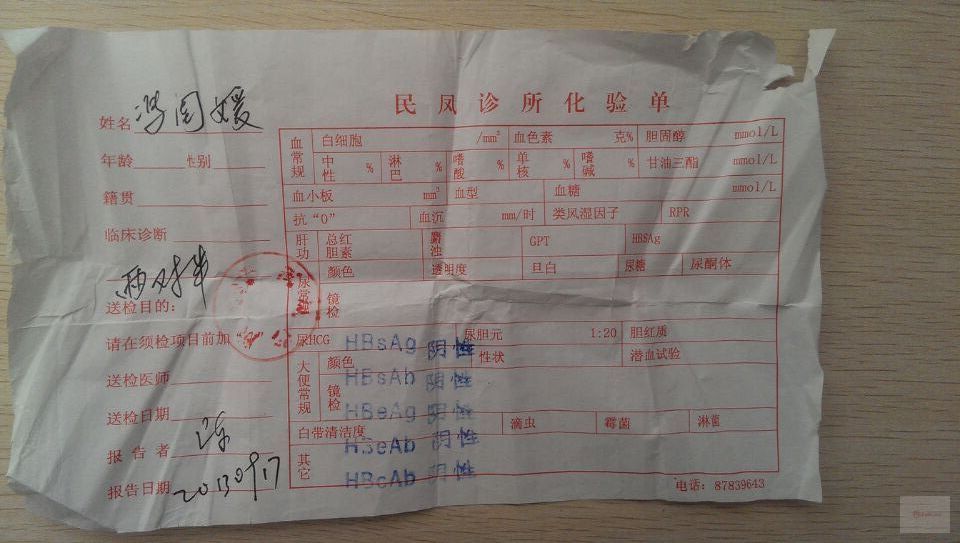 民凤诊所化验单
姓名
年龄 性别
籍贯
临床诊断
两对半
送检目的：
请在须检项目前加
送检医师
送检日期
报告者
报告日期 20130917
血常规 白细胞 /mm³ 血色素 克% 胆固醇 mmol/L
中性 % 淋巴 % 嗜酸 % 单核 % 嗜碱 % 甘油三酯 mmol/L
血小板 mm³ 血型 血糖 mmol/L
抗“0” 血沉 mm/时 类风湿因子 RPR
肝功 总红胆素 麝浊 GPT HBSAg
尿常规 颜色 透明度 旦白 尿糖 尿酮体
镜检
尿HCG 尿胆元 1:20 胆红质
HBsAg 阴性
大便常规 颜色 性状 潜血试验
HBsAb 阴性
镜检
HBeAg 阴性
白带清洁度 滴虫 霉菌 淋菌
HBeAb 阴性
其它
HBcAb 阴性
电话：87839643